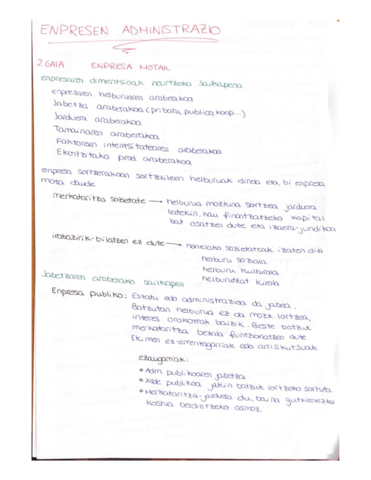 ENPRESEN ADMINISTRAZIO
2 GAIA ENPRESA MOTAK
enpresaren dimentsioak neurtzeko sailkapena
enpresaren helburuaren araberakoa
Jabetza araberakoa (pribatu, publica, koop...)
Jarduera araberakoa
Tamainaren araberakoa
Faktoreen intentsitatearen araberakoa
Ekoitzitako prod. araberakoa
enpresa sortzerakoan sortzaileen helburuak direla eta, bi enpresa
mota daude
merkataritza sozietate → helburua mozkina sortzea jarduera
batekin, hau finantzatzeko kapital
bat osatzen dute eta izaera-juridikoa
irabazirik-bilatzen ez dute → honelako sozietateak izaten dira
helburu soziala
helburu kulturala
helburutzat kirola
Jabetzaren araberako sailkapena
Enpresa publiko: Estatu edo administrazioa da jabea.
Batzutan helburua ez da mozk. lortzea,
interes orokorrak baizik. Beste batzuk
merkataritza bezala funtzionatzen dute
Ekimen et-errentagarriak edo arriskutsuak
ezaugarriak:
• Adm. publikoaren jabetza.
• Xede publikoa jakin batzuk lortzeko sortuta
• Merkataritza-jarduera du, baina gutxienezko
kostua berdintzeko asmoz.